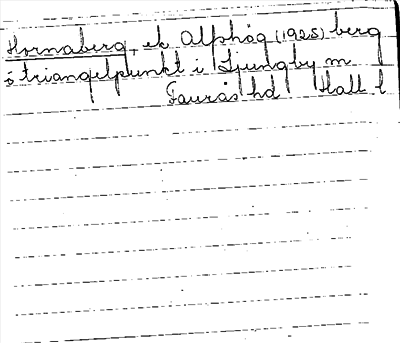 Hornaberg, ek Alphög (1925) berg
ö triangelpunkt i Ljungby sn
Faurås hd Hall l